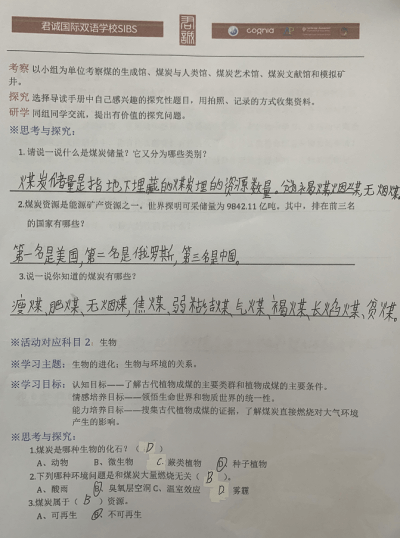 君诚国际双语学校SIBS
君誠
cognia
考察 以小组为单位考察煤的生成馆、煤炭与人类馆、煤炭艺术馆、煤炭文献馆和模拟矿
井。
探究 选择导读手册中自己感兴趣的探究性题目，用拍照、记录的方式收集资料。
研学 同组同学交流，提出有价值的探究问题。
※思考与探究：
1. 请说一说什么是煤炭储量？它又分为哪些类别？
煤炭储量是指地下埋藏的煤炭埋的资源数量。分为褐煤烟煤无烟煤
2.煤炭资源是能源矿产资源之一。世界探明可采储量为 9842.11 亿吨。其中，排在前三名
的国家有哪些？
第一名是美国，第二名是俄罗斯，第三名是中国。
3.说一说你知道的煤炭有哪些？
瘦煤、肥煤、无烟煤、焦煤、弱粘结煤、气煤、褐煤、长焰煤、贫煤。
※活动对应科目 2：生物
※学习主题：生物的进化；生物与环境的关系。
※学习目标：认知目标——了解古代植物成煤的主要类群和植物成煤的主要条件。
情感培养目标——领悟生命世界和物质世界的统一性。
能力培养目标——搜集古代植物成煤的证据，了解煤炭直接燃烧对大气环境
产生的影响。
※思考与探究：
1.煤炭是哪种生物的化石？（ D ）
A、动物 B、微生物 C、蕨类植物 D、种子植物
2.下列哪种环境问题是和煤炭大量燃烧无关（ B ）。
A、酸雨 B、臭氧层空洞 C、温室效应 D、雾霾
3.煤炭属于（ B ）资源。
A、可再生 B、不可再生